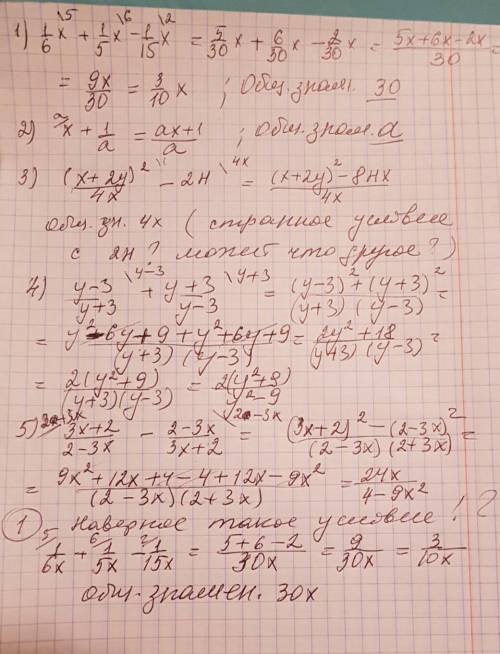 1) 1/6 x \5 + 1/5 x \6 - 1/15 x \2 = 5/30 x + 6/30 x - 2/30 x = (5x+6x-2x)/30 =
= 9x/30 = 3/10 x ; Общ. знам. 30
2) x + 1/a = (ax+1)/a ; Общ. знам. a
3) (x+2y)²/4x \1 - 2н \4x = ((x+2y)² - 8нx)/4x
общ. зн. 4x (странное условие
с 2н? может что другое?)
4) (y-3)/(y+3) \y-3 + (y+3)/(y-3) \y+3 = ((y-3)²+(y+3)²)/((y+3)(y-3)) =
= (y²-6y+9+y²+6y+9)/((y+3)(y-3)) = (2y²+18)/((y+3)(y-3)) =
= 2(y²+9)/((y+3)(y-3)) = 2(y²+9)/(y²-9)
5) (3x+2)/(2-3x) - (2-3x)/(3x+2) \2-3x = ((3x+2)²-(2-3x)²)/((2-3x)(2+3x)) =
= (9x²+12x+4-4+12x-9x²)/((2-3x)(2+3x)) = 24x/(4-9x²)
① Наверное такое условие!?
5/ 1/6x + 6/ 1/5x - 2/ 1/15x = (5+6-2)/30x = 9/30x = 3/10x
общ. знамен. 30x